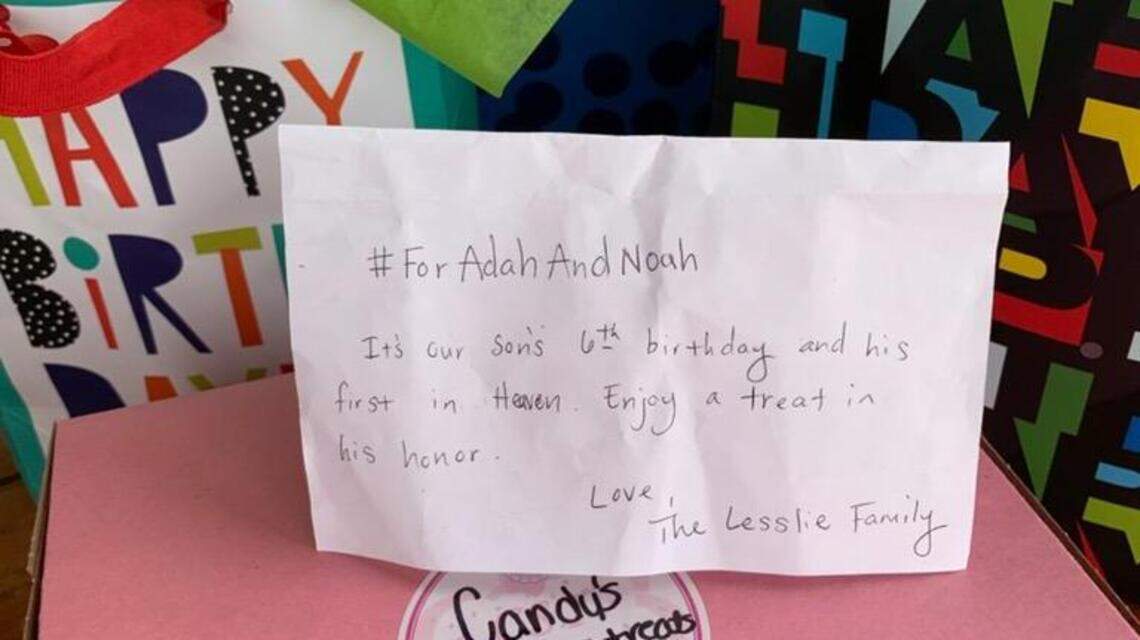 HAPPY
BIRT
DAY
#ForAdahAndNoah
It's our son's 6th birthday and his
first in Heaven. Enjoy a treat in
his honor.
Love,
The Lesslie Family
Candy's
treats